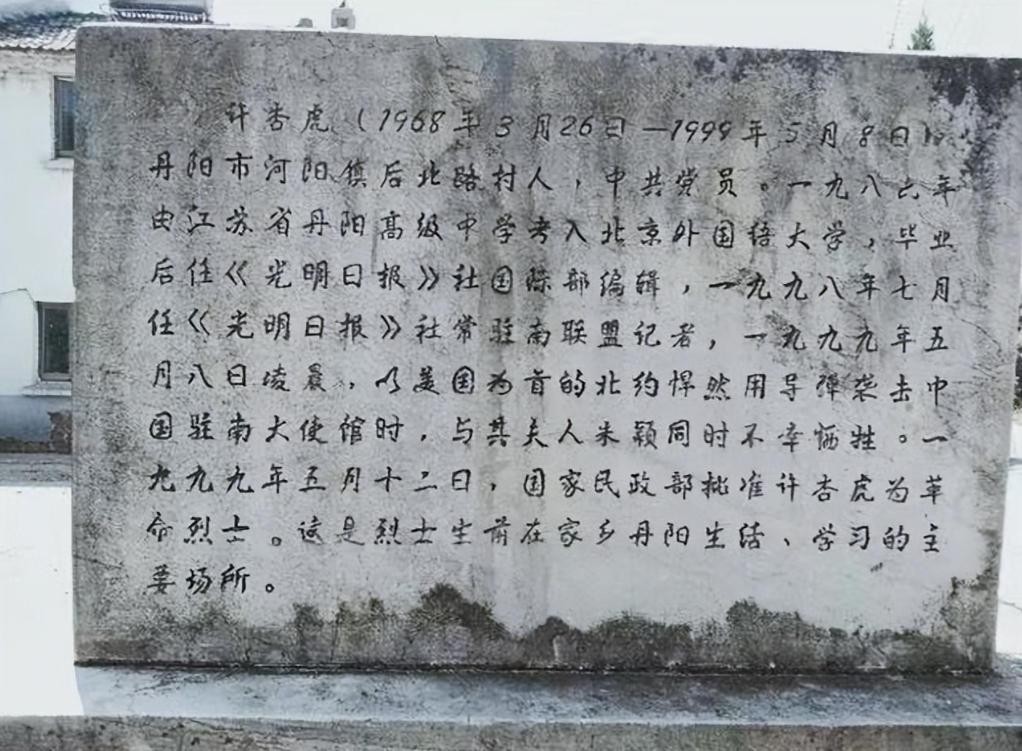 许杏虎（1968年3月26日—1999年5月8日），
丹阳市河阳镇后北路村人，中共党员。一九八六年
由江苏省丹阳高级中学考入北京外国语大学，毕业
后任《光明日报》社国际部编辑，一九九八年七月
任《光明日报》社常驻南联盟记者，一九九九年五
月八日凌晨，以美国为首的北约悍然用导弹袭击中
国驻南大使馆时，与其夫人朱颖同时不幸牺牲。一
九九九年五月十二日，国家民政部批准许杏虎为革
命烈士。这是烈士生前在家乡丹阳生活、学习的主
要场所。